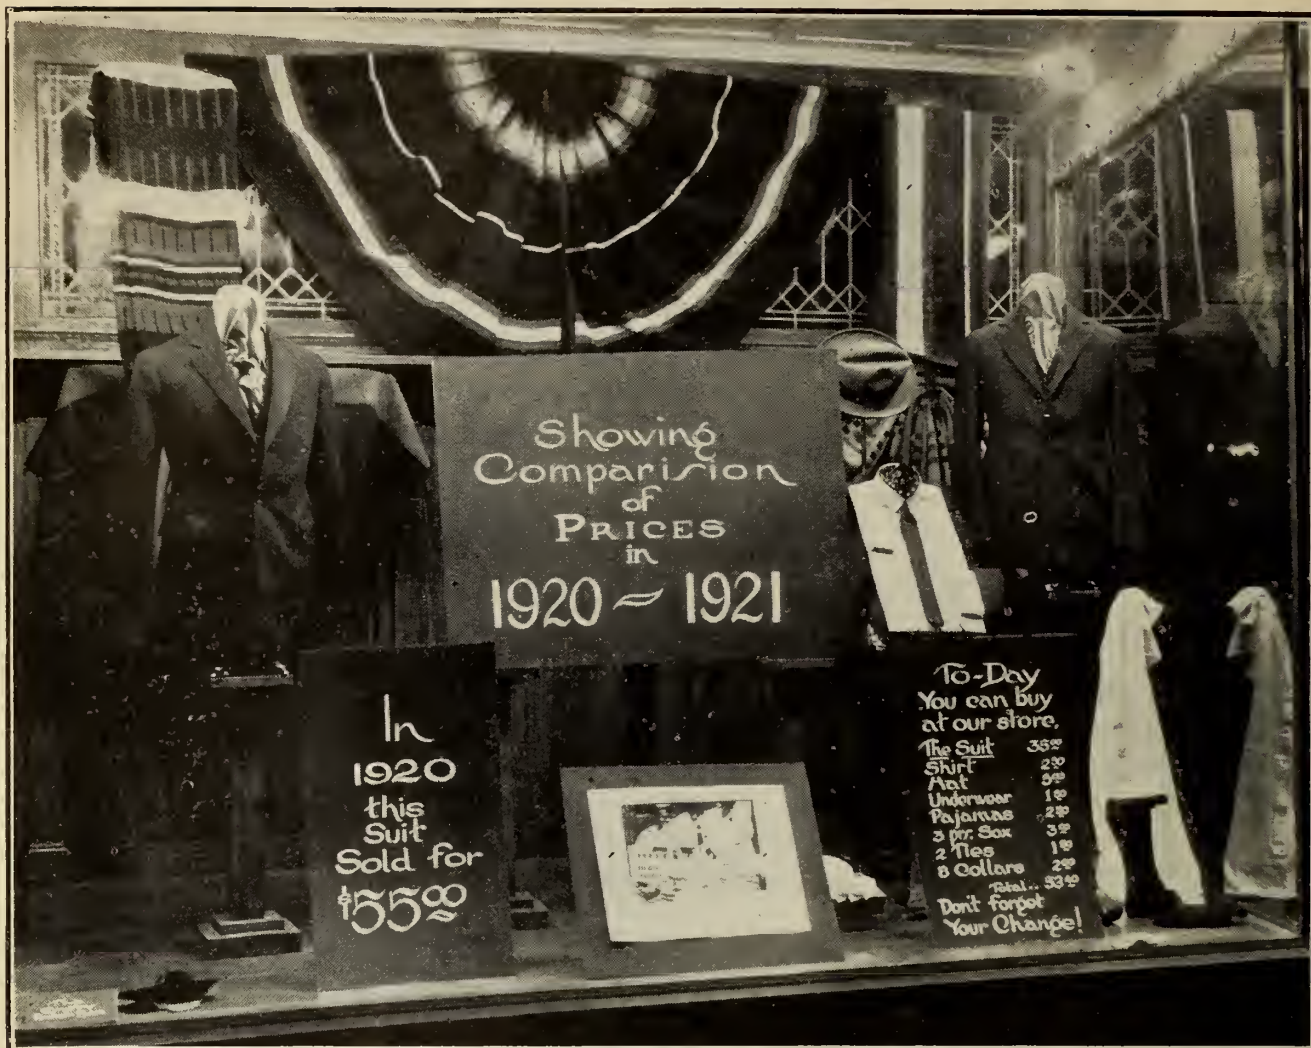 Showing
Comparision
of
PRICES
in
1920 - 1921
In
1920
this
Suit
Sold for
$55.00
To-Day
You can buy
at our store.
The Suit
Shirt
Hat
Underwear
Pajamas
3 pr. Sox
2 Ties
8 Collars
Total..
Don't forget
Your Change!